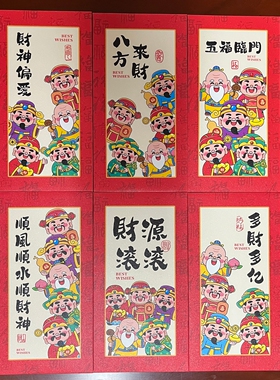 財神偏愛
BEST
WISHES
八方來財
BEST
WISHES
五福臨門
BEST
WISHES
順風順水順財神
BEST
WISHES
財源滾滾
BEST
WISHES
多財多亿
BEST
WISHES